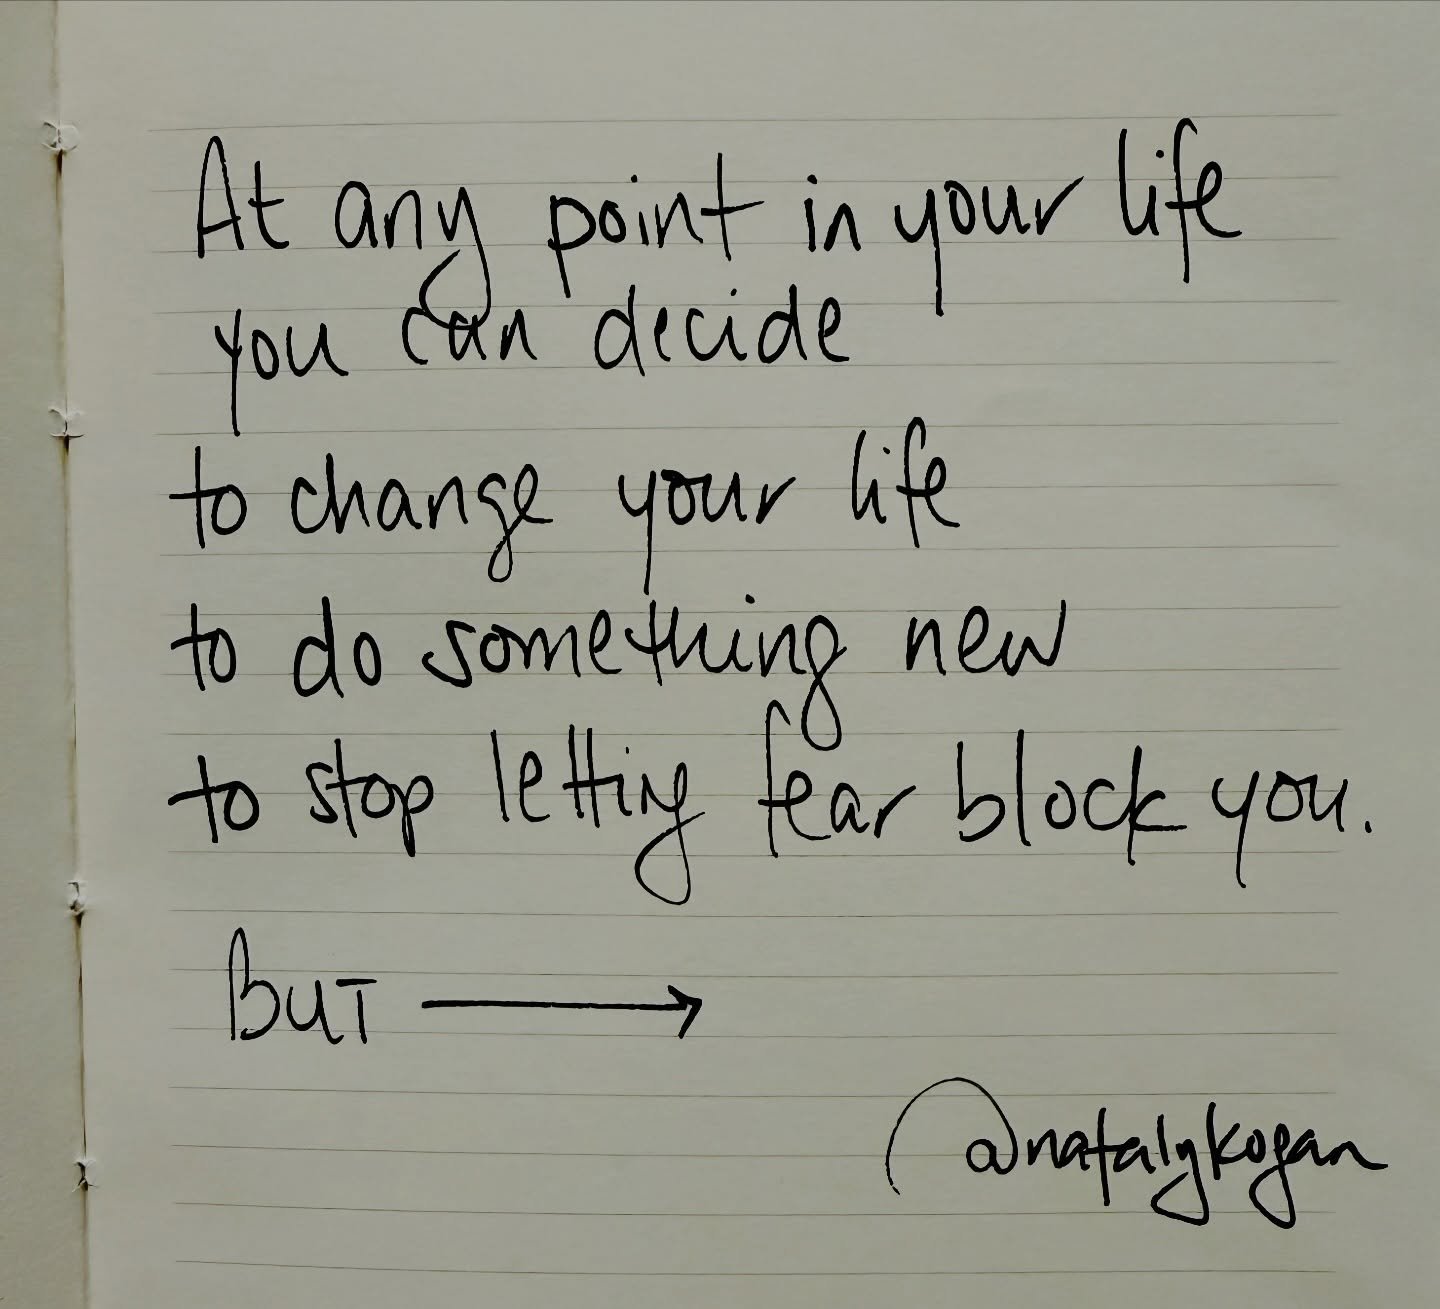 At any point in your life
you can decide
to change your life
to do something new
to stop letting fear block you.
BUT →
@natalykogan